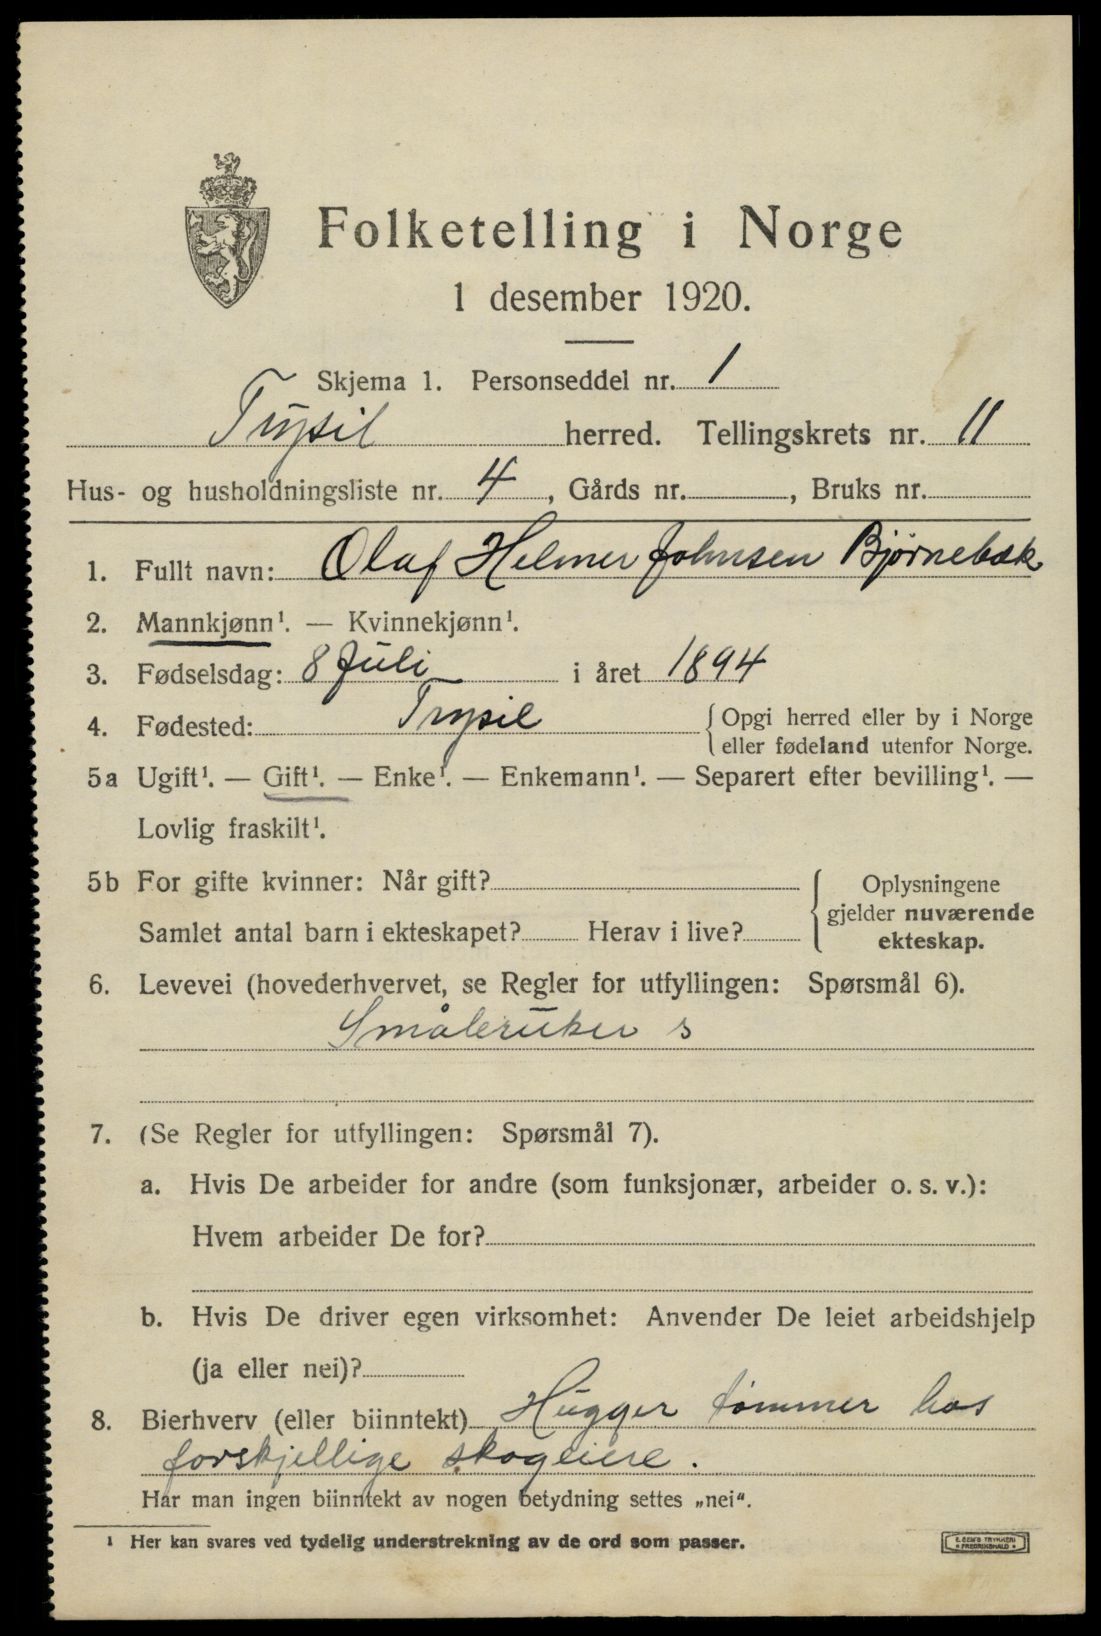 Folketelling i Norge
1 desember 1920.
Skjema 1. Personseddel nr. 1
Trysil herred. Tellingskrets nr. 11
Hus- og husholdningsliste nr. 4, Gårds nr. , Bruks nr.
1. Fullt navn: Olaf Helmer Johnsen Bjørnebæk
2. Mannkjønn¹. — Kvinnekjønn¹.
3. Fødselsdag: 8 Juli i året 1894
4. Fødested: Trysil { Opgi herred eller by i Norge
eller fødeland utenfor Norge.
5a Ugift¹. — Gift¹. — Enke¹. — Enkemann¹. — Separert efter bevilling¹. —
Lovlig fraskilt¹.
5b For gifte kvinner: Når gift? { Oplysningene
gjelder nuværende
Samlet antal barn i ekteskapet? Herav i live?
ekteskap.
6. Levevei (hovederhvervet, se Regler for utfyllingen: Spørsmål 6).
Småbruker s
7. (Se Regler for utfyllingen: Spørsmål 7).
a. Hvis De arbeider for andre (som funksjonær, arbeider o. s. v.):
Hvem arbeider De for?
b. Hvis De driver egen virksomhet: Anvender De leiet arbeidshjelp
(ja eller nei)?
8. Bierhverv (eller biinntekt) Hugger tømmer hos
forskjellige skogeiere.
Har man ingen biinntekt av nogen betydning settes „nei“.
¹ Her kan svares ved tydelig understrekning av de ord som passer.